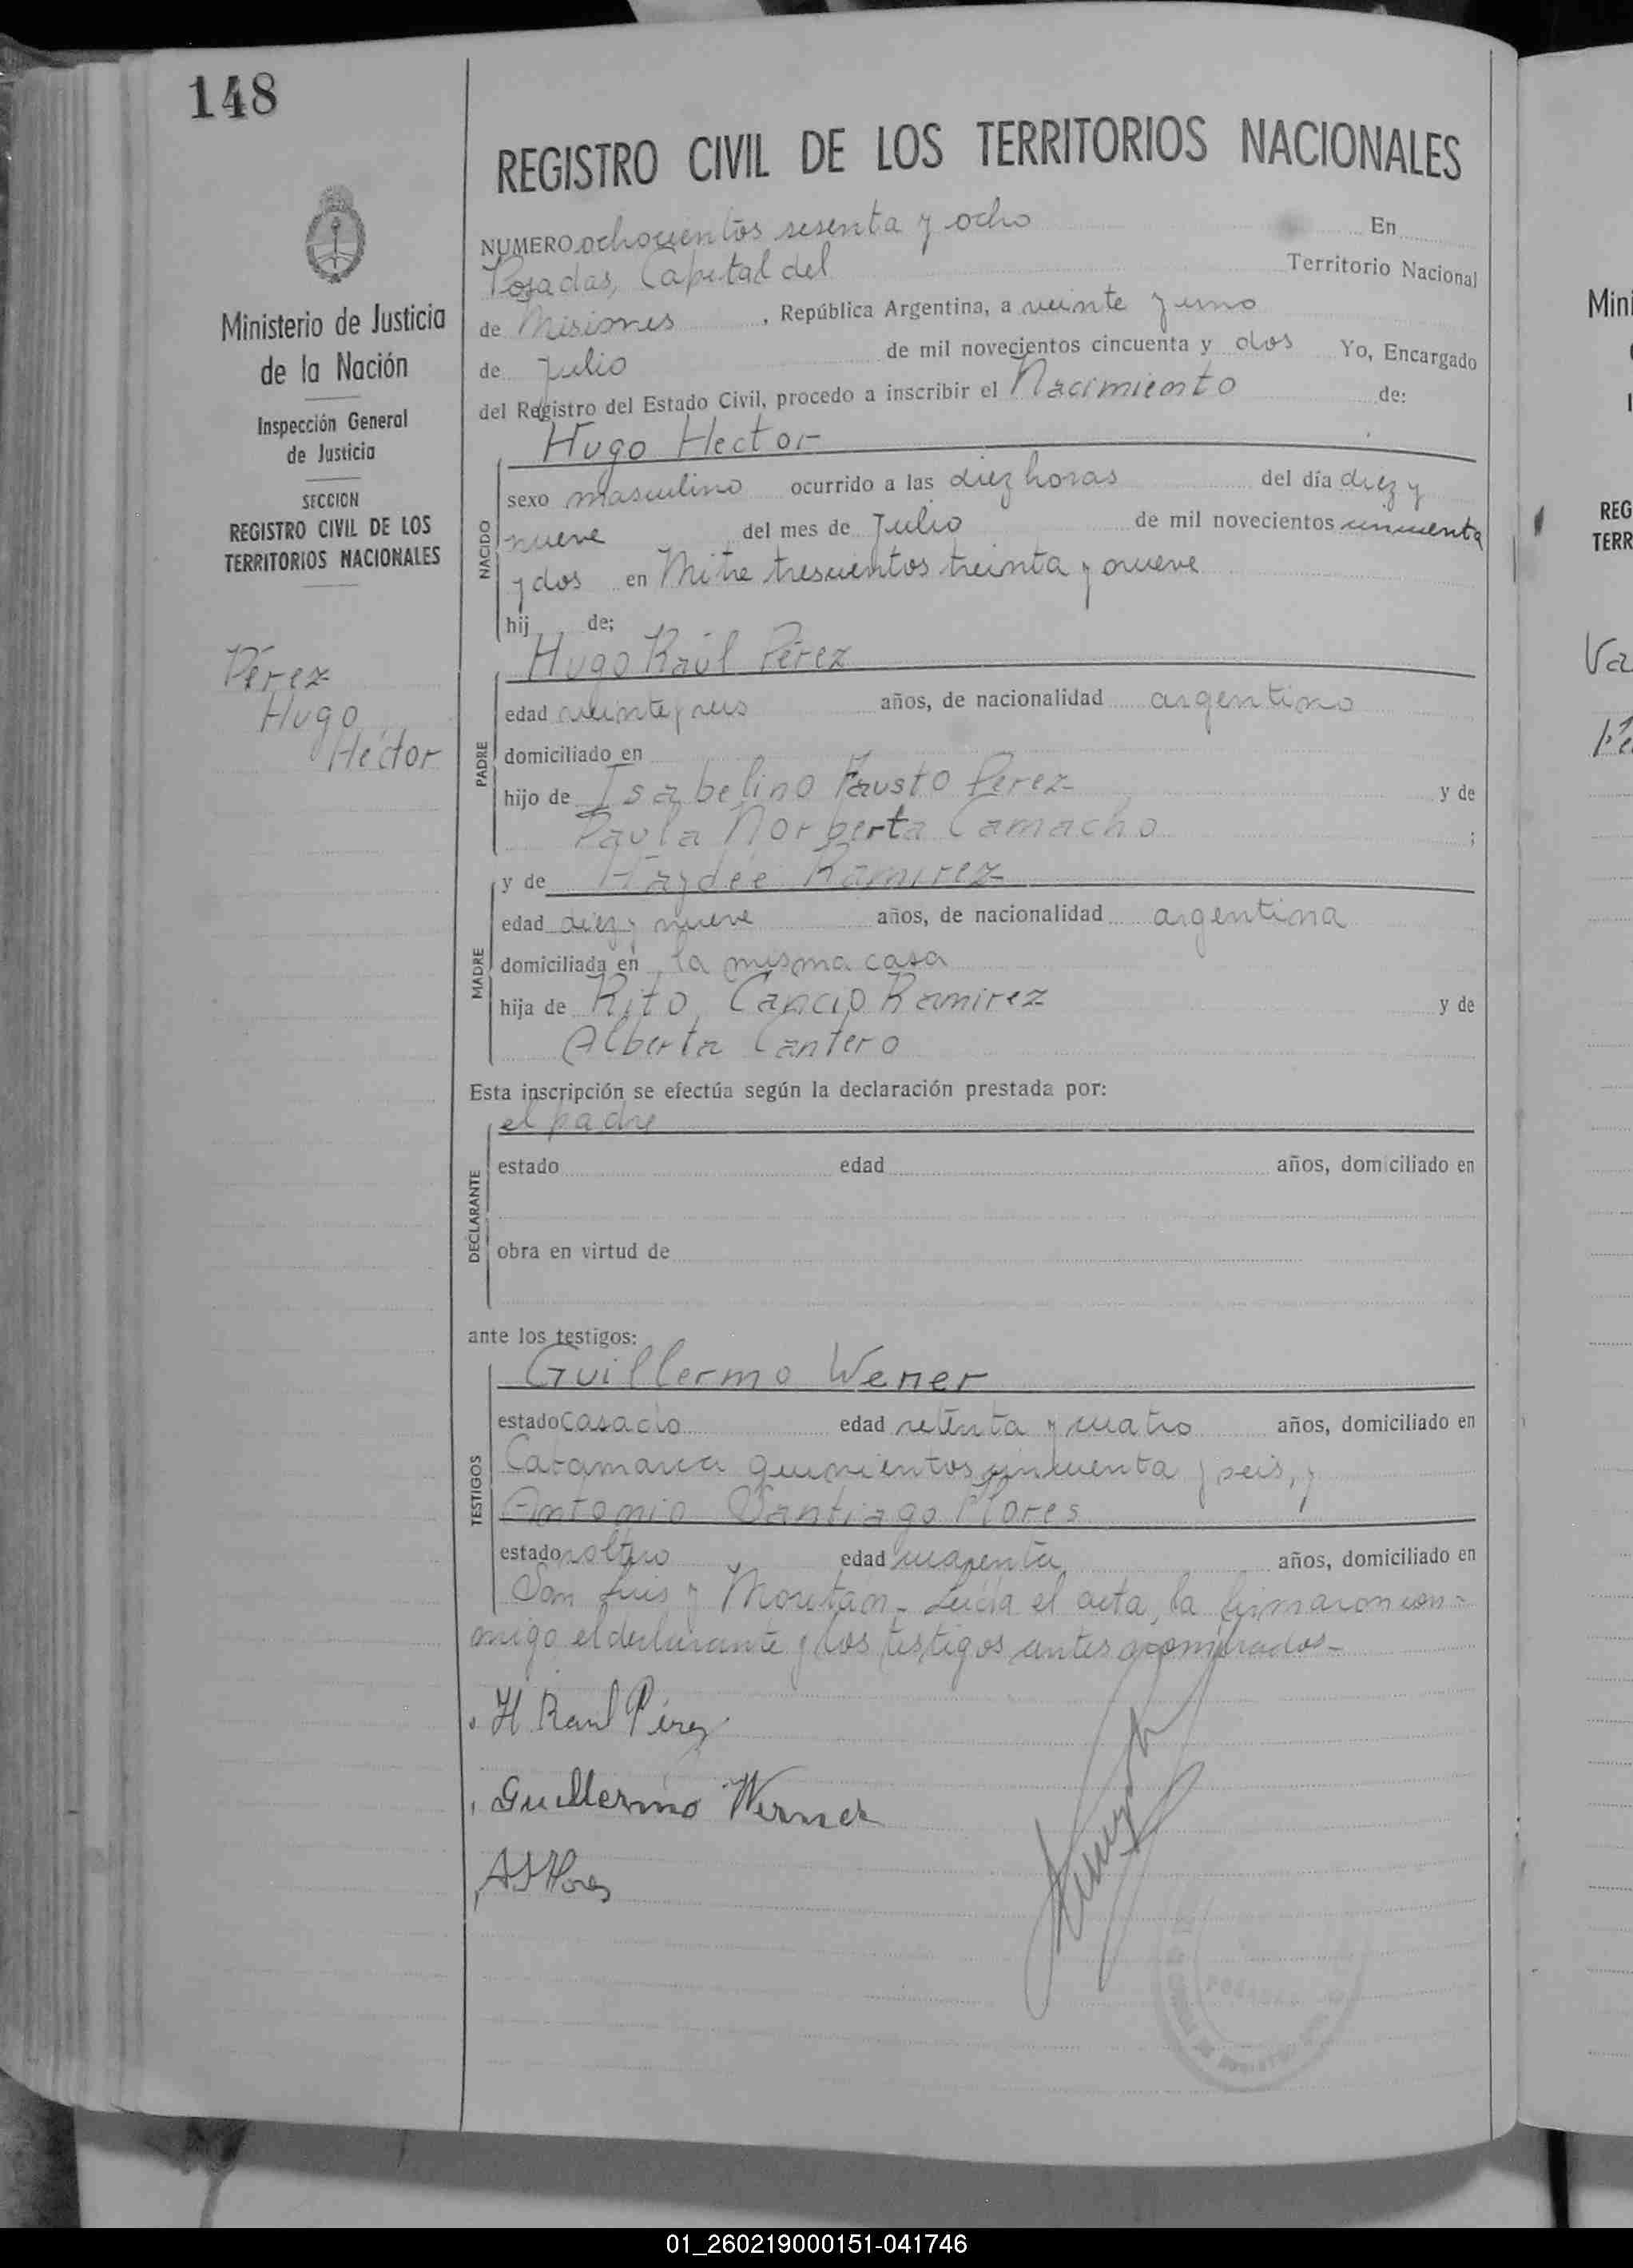 148
REGISTRO CIVIL DE LOS TERRITORIOS NACIONALES
Ministerio de Justicia
de la Nación
Inspección General
de Justicia
SECCION
REGISTRO CIVIL DE LOS
TERRITORIOS NACIONALES
Pérez
Hugo
Héctor
NUMERO ochocientos sesenta y ocho En
Posadas, Capital del Territorio Nacional
de Misiones, República Argentina, a veinte y uno
de Julio de mil novecientos cincuenta y dos Yo, Encargado
del Registro del Estado Civil, procedo a inscribir el Nacimiento de:
Hugo Hector
NACIDO
sexo masculino ocurrido a las diez horas del día diez y
nueve del mes de Julio de mil novecientos cincuenta
y dos en Mitre trescientos treinta y nueve
hij de:
Hugo Raúl Pérez
PADRE
edad veinte y seis años, de nacionalidad argentino
domiciliado en
hijo de Isabelino Fausto Perez y de
Paula Norberta Camacho ;
y de Haydée Ramirez
MADRE
edad diez y nueve años, de nacionalidad argentina
domiciliada en la misma casa
hija de Rito Cancio Ramirez y de
Alberta Cantero
Esta inscripción se efectúa según la declaración prestada por:
el padre
DECLARANTE
estado edad años, domiciliado en
obra en virtud de
ante los testigos:
Guillermo Werner
TESTIGOS
estado casado edad setenta y cuatro años, domiciliado en
Catamarca quinientos cincuenta y seis, y
Antonio Santiago Flores
estado soltero edad cuarenta años, domiciliado en
San Luis y Moritán - Leída el acta, la firmaron con-
migo el declarante y los testigos antes nombrados-
H Raul Pérez
Guillermo Werner
AS Flores
POSADAS
Mini
REG
TERR
Va
01_260219000151-041746